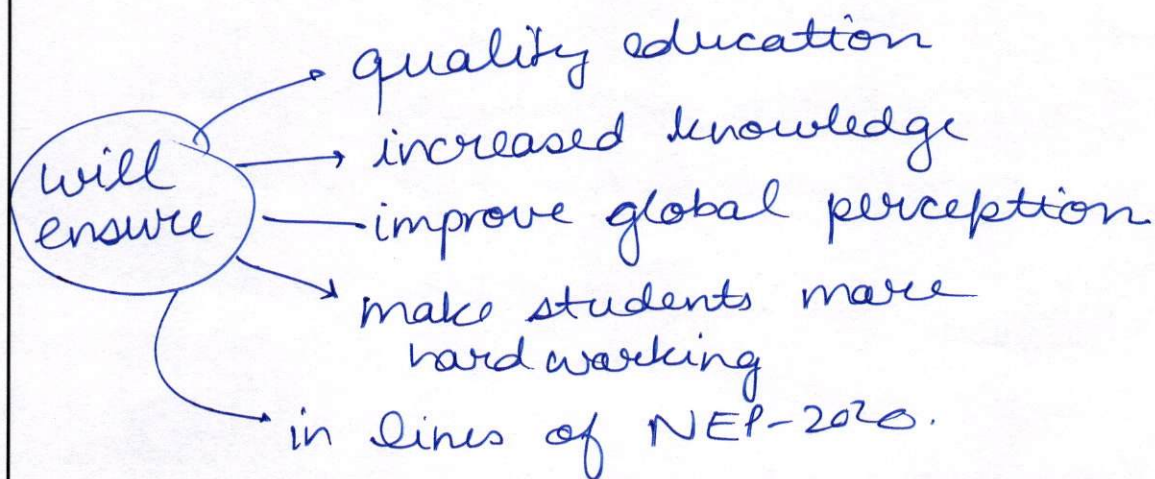 quality education
increased knowledge
will
ensure
improve global perception
make students more
hardworking
in lines of NEP-2020.